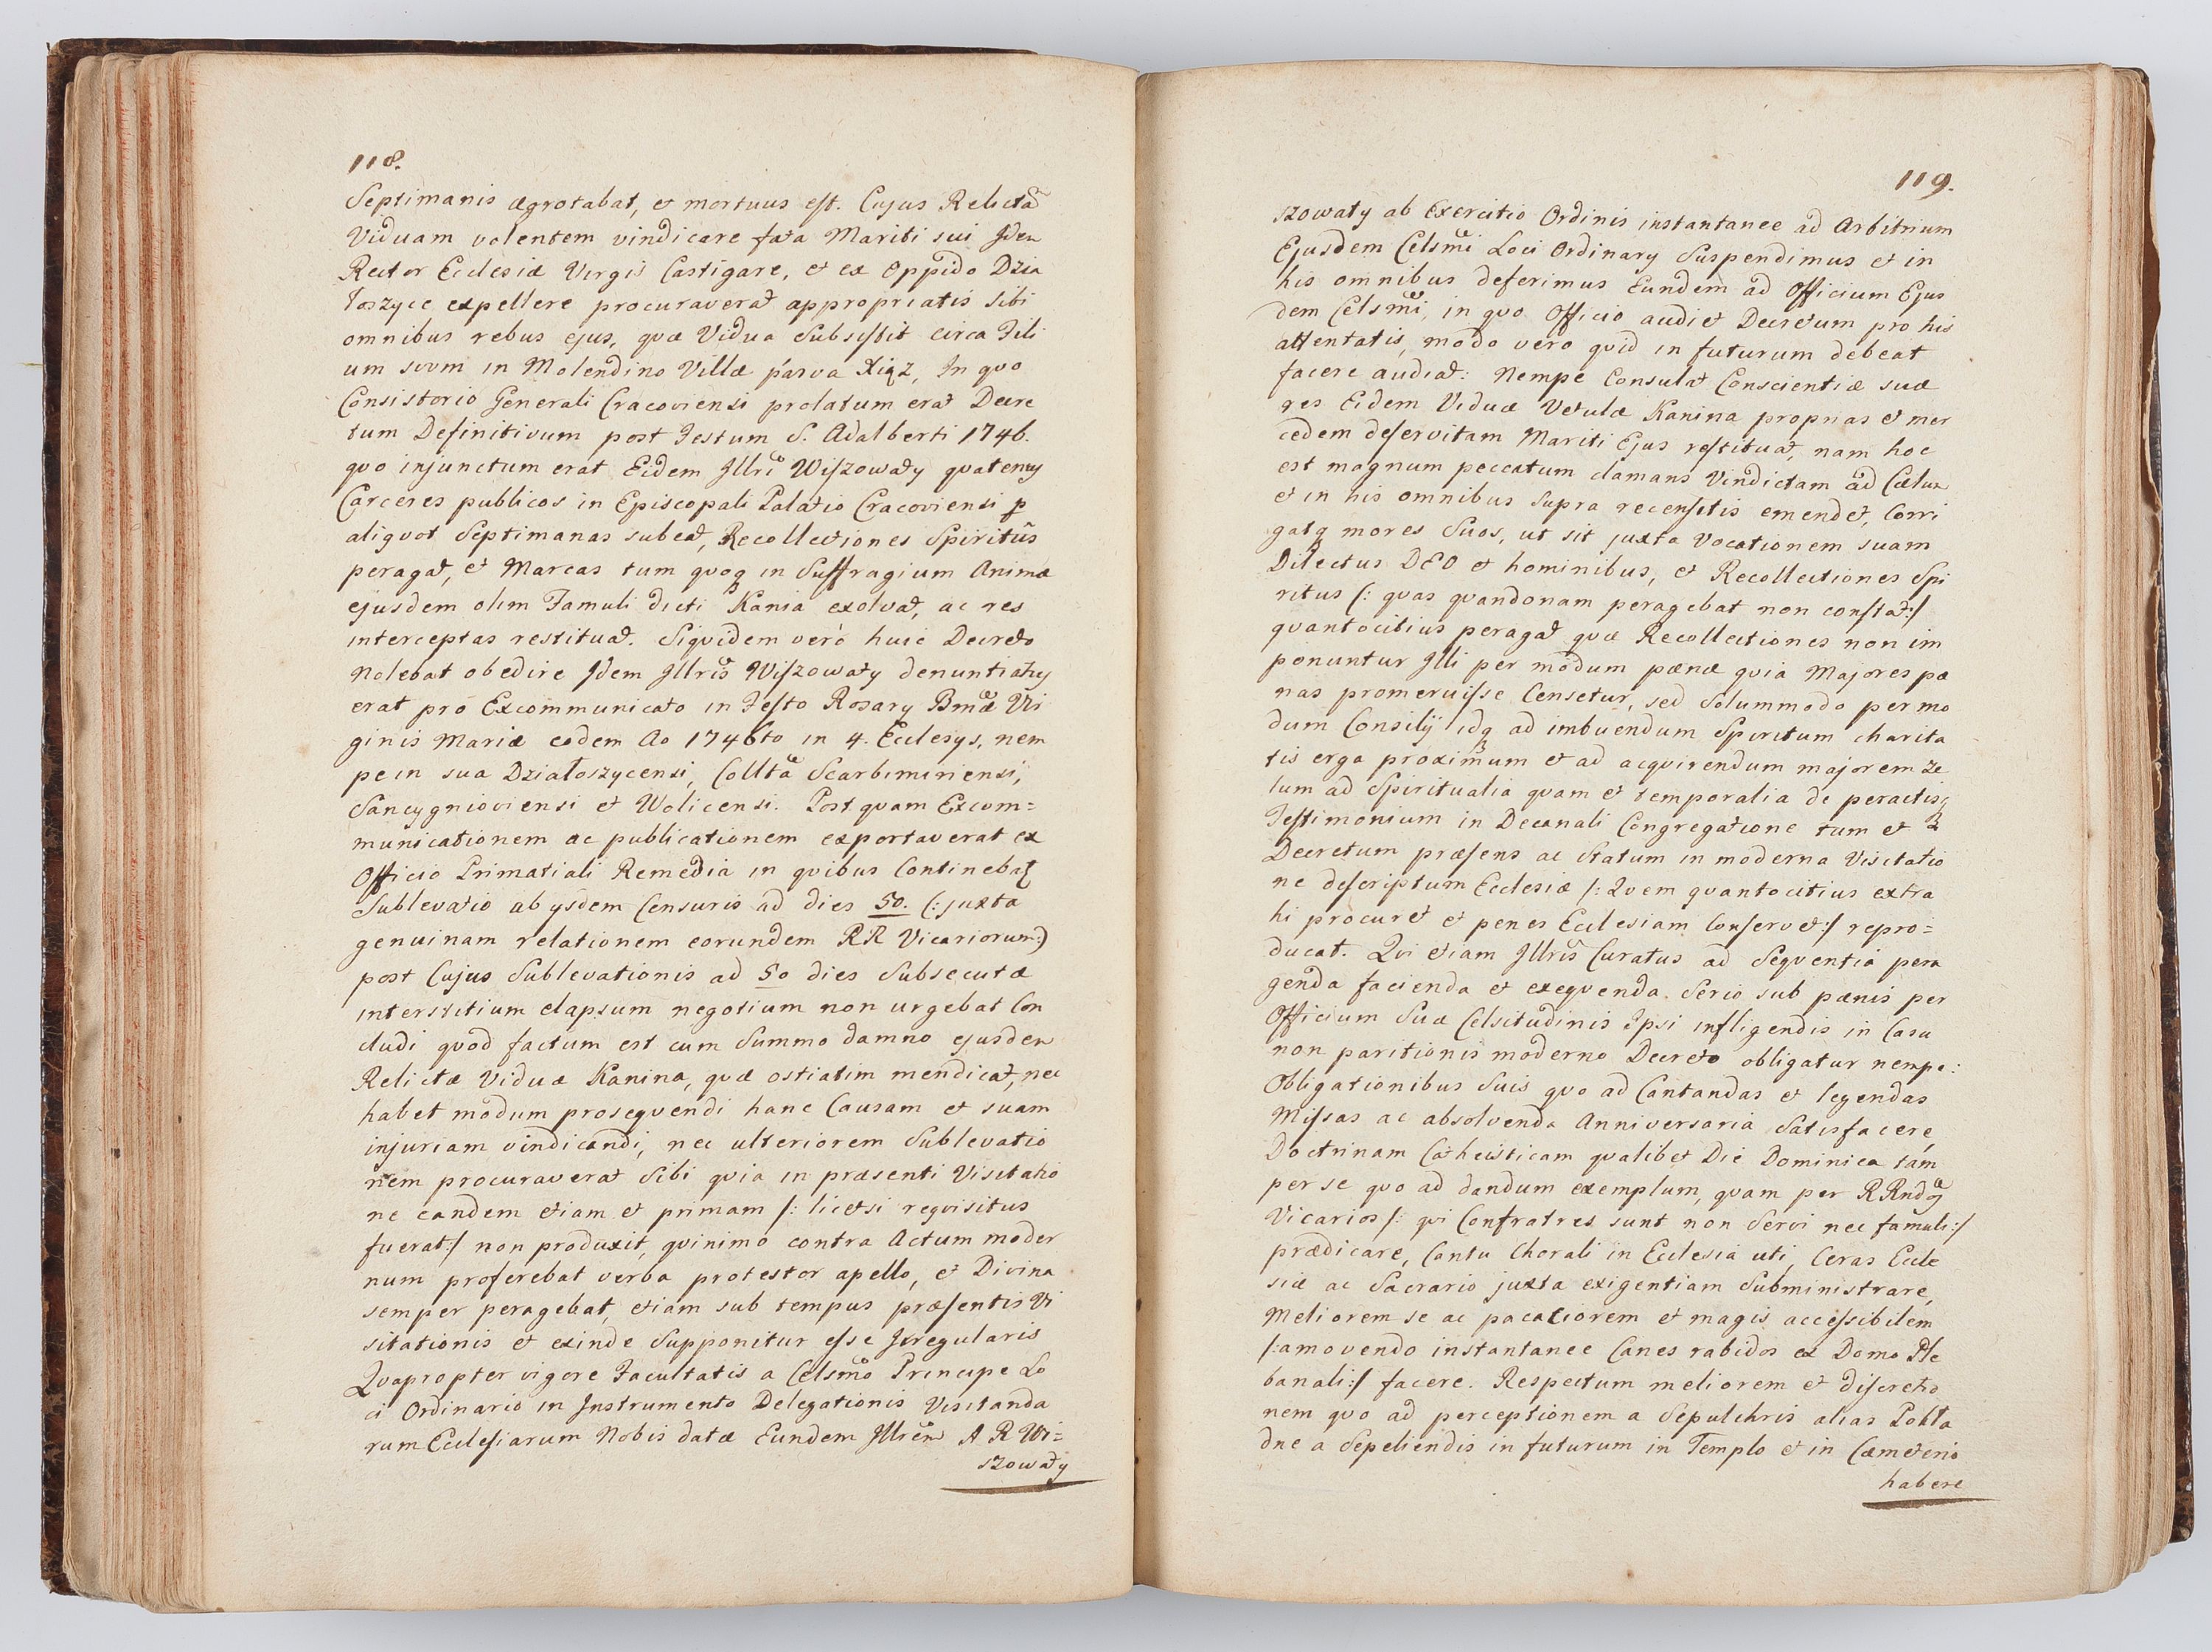 118.
Septimanis ægrotabat, et mortuus est. Cujus Relictã
Viduam volentem vindicare fata Mariti sui Idem
Rector Ecclesiæ Virgis Castigare, et ex Oppido Dzia
łoszyce expellere procuraverat appropriatis sibi
omnibus rebus ejus, quæ Vidua Subsistit circa Fili
um suum in Molendino Villæ parva Xiąz, In quo
Consistorio Generali Cracoviensi prolatum erat Decre
tum Definitivum post Festum S. Adalberti 1746.
quo injunctum erat Eidem Illri Wiszowaty quatenus
Carceres publicos in Episcopali Palatio Cracoviensi p
aliquot Septimanas subeat, Recollectiones Spiritũs
peragat, et Marcas tum quoq in Suffragium Animæ
ejusdem olim Famuli dicti Kania exolvat, ac res
interceptas restituat. Siquidem verò huic Decreto
Nolebat obedire Idem Illris Wiszowaty denuntiatus
erat pro Excommunicato in Festo Rosary Bmæ Vir
ginis Mariæ eodem Ao 1746to in 4. Ecclesys, nem
pe in sua Działoszycensi, Collta Scarbimiriensi,
Sancygnioviensi et Wolicensi. Post quam Excom=
municationem ac publicationem exportaverat ex
Officio Primatiali Remedia in quibus Continebat
Sublevatio ab ysdem Censuris ad dies 50. (: juxta
genuinam relationem eorundem RR Vicariorum:)
post Cujus Sublevationis ad 50 dies Subsecutæ
interstitium elapsum negotium non urgebat Con
cludi quod factum est cum Summo damno ejusdem
Relictæ Viduæ Kanina, quæ ostiatim mendicat, nec
habet modum prosequendi hanc Causam et suam
injuriam vindicandi, nec ulteriorem Sublevatio
nem procuraverat Sibi quia in præsenti Visitatio
ne eandem etiam et primam /: licetsi requisitus
fuerat:/ non produxit, quinimo contra Actum moder
num proferebat verba protestor apello, et Divina
semper peragebat, etiam sub tempus præsentis Vi
sitationis et exinde Supponitur esse Irregularis
Quapropter vigore Facultatis a Celsmo Principe Lo
ci Ordinario in Instrumento Delegationis Visitanda
rum Ecclesiarum Nobis datæ Eundem Illrem A R Wi=
szowaty
119.
szowaty ab Exercitio Ordinis instantanee ad Arbitrium
Ejusdem Celsmi Loci Ordinary Suspendimus et in
his omnibus deferimus Eundem ad Officium Ejus
dem Celsmi, in quo Officio audiet Decretum pro his
attentatis, modo vero quid in futurum debeat
facere audiat: Nempe Consulat Conscientiæ suæ
res Eidem Viduæ Vetulæ Kanina proprias et mer
cedem deservitam Mariti Ejus restituat, nam hoc
est magnum peccatum clamans Vindictam ad Cælum
et in his omnibus Supra recensitis emendet, Corri
gatq mores Suos, ut sit juxta Vocationem suam
Dilectus DEO et hominibus, et Recollectiones Spi
ritus /: quas quandonam peragebat non constat:/
quantocitius peragat quæ Recollectiones non im
ponuntur Illi per modum pænæ quia Majores pæ
nas promeruisse Censetur, sed Solummodo per mo
dum Consilij idq ad imbuendum Spiritum charita
tis erga proximum et ad acquirendum majorem Ze
lum ad Spiritualia quam et temporalia de peractisq
Testimonium in Decanali Congregatione tum et
Decretum præsens ac Statum in moderna Visitatio
ne descriptum Ecclesiæ /: Quem quantocitius extra
hi procuret et penes Ecclesiam Conservet:/ repro=
ducat. Qui etiam Illris Curatus ad Sequentia pera
genda facienda et exequenda Serio sub pænis per
Officium Suæ Celsitudinis Ipsi infligendis in Casu
non paritionis moderno Decreto obligatur nempe:
Obligationibus Suis quo ad Cantandas et legendas
Missas ac absolvenda Anniversaria Satisfacere,
Doctrinam Cathecisticam qualibet Die Dominica tam
per se quo ad dandum exemplum, quam per RRndos
Vicarios /: qui Confratres sunt non Servi nec famuli:/
prædicare, Cantu Chorali in Ecclesia uti, Ceras Eccle
siæ ac Sacrario juxta exigentiam Subministrare,
Meliorem se ac pacatiorem et magis accessibilem
/: amovendo instantanee Canes rabidos ex Domo Ple
banali:/ facere. Respectum meliorem et discretio
nem quo ad perceptionem a Sepulchris alias Pokła
dne a Sepeliendis in futurum in Templo et in Cæmeterio
habere